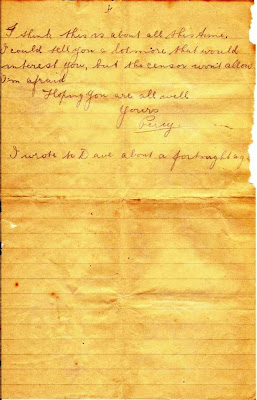 I think this is about all this time.
I could tell you a lot more that would
interest you, but the censor won't allow
I'm afraid
Hoping you are all well
Yours
Percy.
I wrote to Dave about a fortnight ago